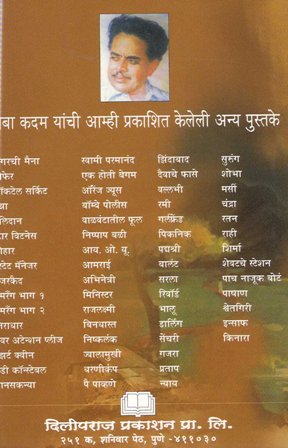 बा कदम यांची आम्ही प्रकाशित केलेली अन्य पुस्तके
गरची मैना स्वामी परमानंद झिंदाबाद सुरुंग
फेर एक होती बेगम दैवाचे फासे शोभा
कॉकटेल सर्किट ऑरेंज ज्यूस वल्लभी मर्सी
बॉम्बे पोलीस रमी चंद्रा
लिदान वाळवंटातील फूल गर्लफ्रेंड रतन
टार विटनेस निष्पाप बळी पिकनिक राही
हार आय. ओ. यू. पद्मश्री शिर्मा
स्टेट मॅनेजर आमराई बॅलेट शेवटचे स्टेशन
अभिनेत्री सरला पाच नाजूक बोटं
भाग १ मिनिस्टर रिवॉर्ड पाषाण
भाग २ राजलक्ष्मी भालू श्वेतगिरी
बिनधास्त डार्लिंग इन्साफ
अटेन्शन प्लीज निष्कलंक सेंचरी किनारा
क्वीन ज्वालामुखी गजरा
कॉन्स्टेबल धरणीकंप प्रताप
ानसकन्या पै पाव्हणे न्याय
दिलीपराज प्रकाशन प्रा. लि.
२५१ क, शनिवार पेठ, पुणे - ४११०३०